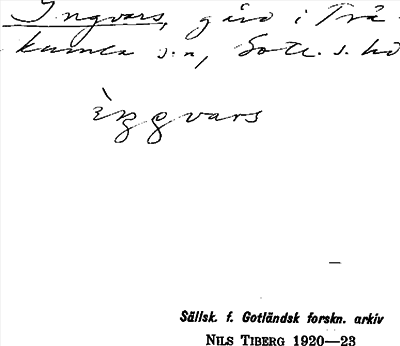 Ingvars, gård i Trä-
kumla s:n, Sote. s. hd
ìŋgvars
—
Sällsk. f. Gotländsk forskn. arkiv
NILS TIBERG 1920—23